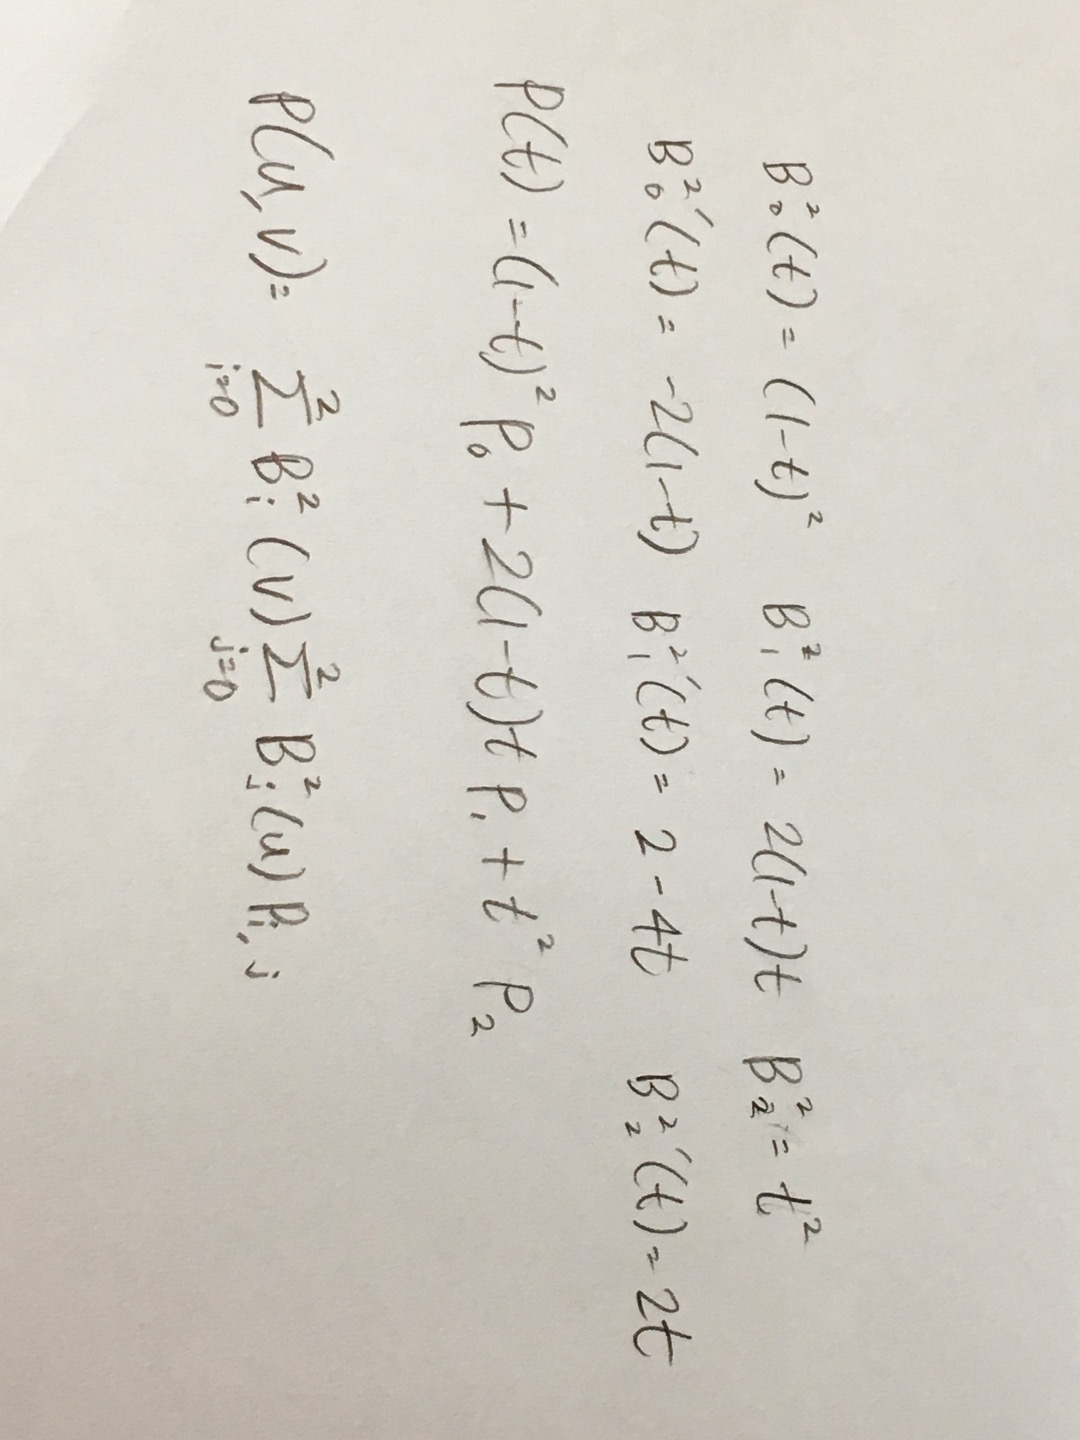 B₀²(t) = (1-t)² B₁²(t) = 2(1-t)t B₂² = t²
B₀²'(t) = -2(1-t) B₁²'(t) = 2-4t B₂²'(t) = 2t
P(t) = (1-t)² P₀ + 2(1-t)t P₁ + t² P₂
P(u,v) = ∑_{i=0}^{2} B_i²(v) ∑_{j=0}^{2} B_j²(u) P_{i,j}